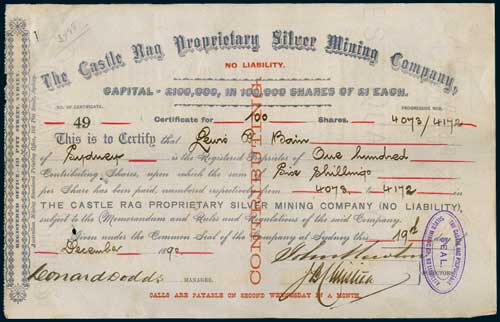 The Castle Rag Proprietary Silver Mining Company,
NO LIABILITY.
CAPITAL - £100,000, IN 100,000 SHARES OF £1 EACH.
NO. OF CERTIFICATE. PROGRESSIVE NOS.
49 Certificate for 100 Shares. 4073/4172
This is to Certify that Lewis P. Bain
of Sydney is the Registered Proprietor of One hundred
Contributing Shares, upon which the sum of Six Shillings
per Share has been paid, numbered respectively from 4073 to 4172 in
THE CASTLE RAG PROPRIETARY SILVER MINING COMPANY (NO LIABILITY),
subject to the Memorandum and Rules and Regulations of the said Company.
Given under the Common Seal of the Company at Sydney this 19th
December 1890
CONTRIBUTING
Leonard Dodds MANAGER.
DIRECTORS
SEAL.
CALLS ARE PAYABLE ON SECOND WEDNESDAY IN A MONTH.